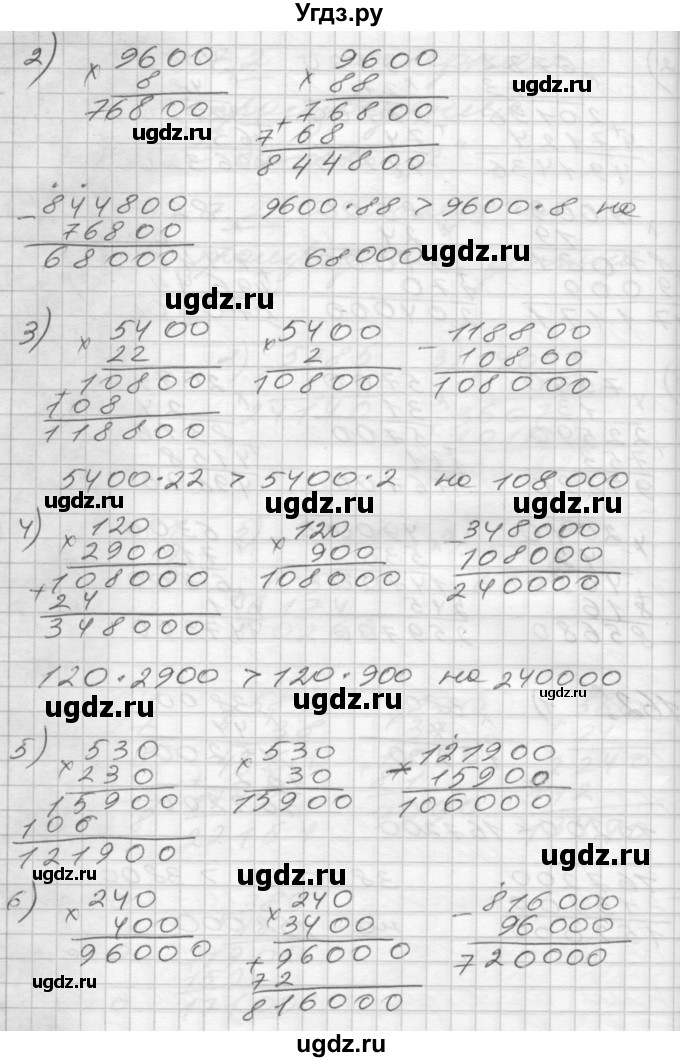 Угдз.ру
2)
9600
× 8
76800
9600
× 88
76800
+
768
844800
ugdz.ru
ugdz.ru
- 844800
76800
68000
9600 · 88 > 9600 · 8 на
68000
ugdz.ru
ugdz.ru
3)
5400
× 22
+ 10800
108
118800
5400
× 2
10800
- 118800
10800
108000
5400 · 22 > 5400 · 2 на 108000
ugdz.ru
ugdz.ru
ugdz.ru
4)
120
× 2900
+ 108000
24
348000
120
× 900
108000
- 348000
108000
240000
120 · 2900 > 120 · 900 на 240000
ugdz.ru
ugdz.ru
ugdz.ru
5)
530
× 230
15900
106
121900
530
× 30
15900
121900
15900
106000
ugdz.ru
ugdz.ru
ugdz.ru
6)
240
× 400
96000
240
× 3400
+ 96000
72
816000
- 816000
96000
720000
ugdz.ru
ugdz.ru
ugdz.ru